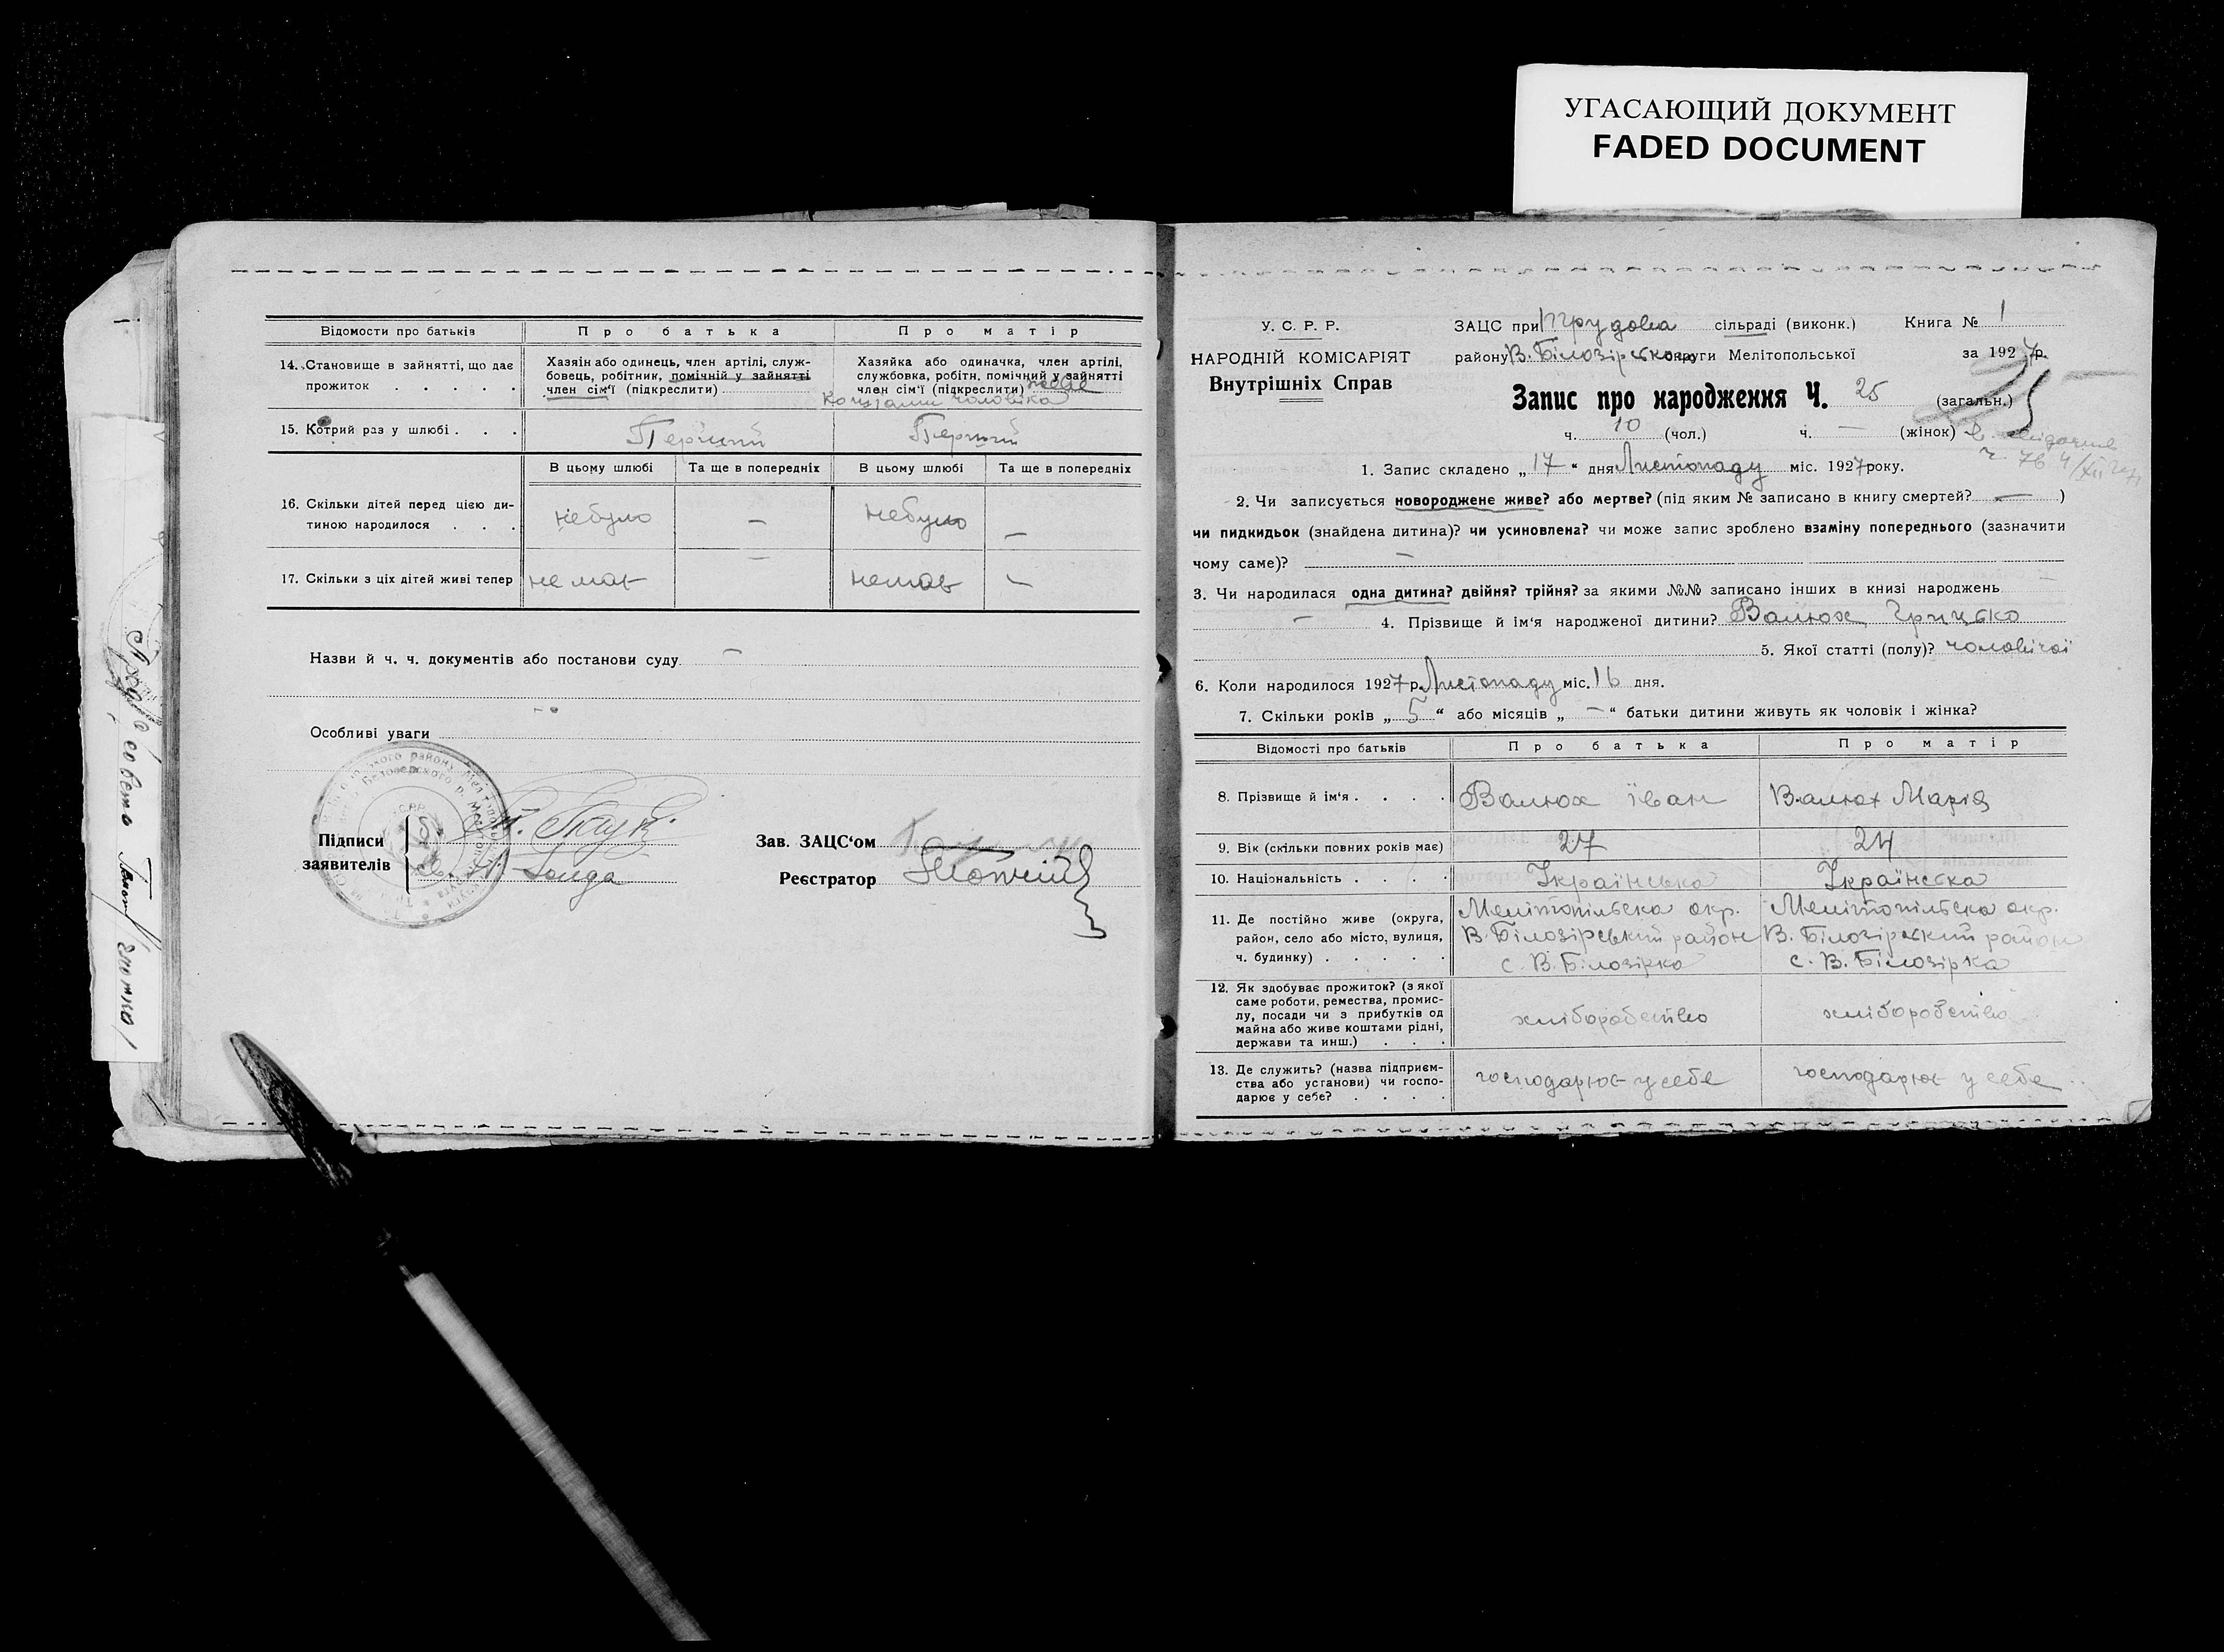 УГАСАЮЩИЙ ДОКУМЕНТ
FADED DOCUMENT
Відомости про батьків
Про батька
Про матір
14. Становище в зайнятті, що дає прожиток . . . . .
Хазяїн або одинець, член артілі, служ-
бовець, робітник, помічній у зайнятті
член сім'ї (підкреслити)
Хазяйка або одиначка, член артілі,
службовка, робітн. помічний у зайнятті
член сім'ї (підкреслити) живе
коштами чоловіка
15. Котрий раз у шлюбі . . .
Перший
Перший
В цьому шлюбі
Та ще в попередніх
В цьому шлюбі
Та ще в попередніх
16. Скільки дітей перед цією ди-
тиною народилося . . .
небуло
—
небуло
—
17. Скільки з ціх дітей живі тепер
немає
—
немає
—
Назви й ч. ч. документів або постанови суду —
Особливі уваги
Підписи
заявителів
Зав. ЗАЦС'ом
Реєстратор
У. С. Р. Р.
НАРОДНІЙ КОМІСАРІЯТ
Внутрішніх Справ
ЗАЦС при Трудова сільраді (виконк.) Книга № 1
району В. Білозірської округи Мелітопольської за 1927 р.
Запис про народження Ч. 25 (загальн.)
ч. 10 (чол.) ч. — (жінок)
1. Запис складено „17“ дня Листопаду міс. 1927 року.
2. Чи записується новороджене живе? або мертве? (під яким № записано в книгу смертей? — )
чи пидкидьок (знайдена дитина)? чи усиновлена? чи може запис зроблено взаміну попереднього (зазначити
чому саме)? —
3. Чи народилася одна дитина? двійня? трійня? за якими №№ записано інших в книзі народжень
— 4. Прізвище й ім'я народженої дитини? Валюх Грицько
5. Якої статті (полу)? чоловічої
6. Коли народилося 1927 р. Листопаду міс. 16 дня.
7. Скільки років „5“ або місяців „—“ батьки дитини живуть як чоловік і жінка?
Відомості про батьків
Про батька
Про матір
8. Прізвище й ім'я . . . .
Валюх іван
Валюх Марія
9. Вік (скільки повних років має)
27
24
10. Національність . . . .
Українська
Українська
11. Де постійно живе (округа,
район, село або місто, вулиця,
ч. будинку) . . . . .
Мелітопільська окр.
В. Білозірський район
с. В. Білозірка
Мелітопільська окр.
В. Білозірський район
с. В. Білозірка
12. Як здобуває прожиток? (з якої
саме роботи, ремества, промис-
лу, посади чи з прибутків од
майна або живе коштами рідні,
держави та инш.) . . .
хліборобство
хліборобство
13. Де служить? (назва підприєм-
ства або установи) чи госпо-
дарює у себе? . . . .
господарює у себе
господарює у себе